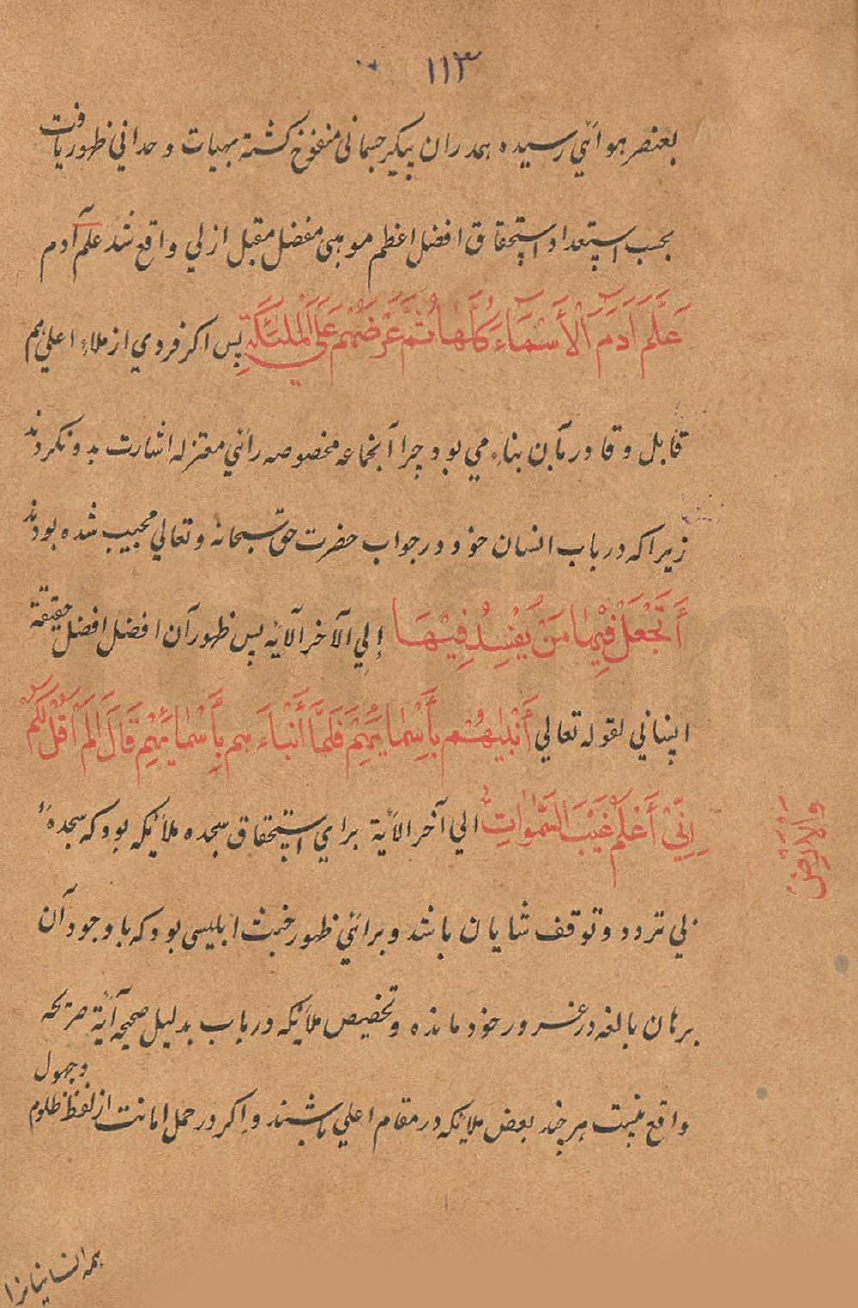 ۱۱۳
بعنصر هوائي رسيده همدران پيكر جسماني منفوخ كشته بهيات وحداني ظهور يافت
بحسب استعداد استحقاق افضل اعظم موهبي مفضل مقبل ازلي واقع شد علم آدم
عَلَّمَ آدَمَ الْأَسْمَاءَ كُلَّهَا ثُمَّ عَرَضَهُمْ عَلَى الْمَلٰئِكَةِ پس اكر فردي از ملاء اعلي هم
قابل وقادر بآن بناء مي بود چرا آنجماعه مخصوصه را نئي معتزله اشارت بدو نكردند
زيراكه در باب انسان خود در جواب حضرت حق سبحانه وتعالي مجيب شده بودند
أَتَجْعَلُ فِيهَا مَنْ يُفْسِدُ فِيهَا إلي الآخر الآيه پس ظهور آن افضل افضل حقيقة
انساني لقوله تعالي أَنْبِئْهُمْ بِأَسْمَائِهِمْ فَلَمَّا أَنْبَاءَهُمْ بِأَسْمَائِهِمْ قَالَ أَلَمْ أَقُلْ لَكُمْ
إِنِّي أَعْلَمُ غَيْبَ السَّمٰوَاتِ الي آخر الآية براي استحقاق سجده ملائكه بود كه سجدهٔ
والارض
بي تردد وتوقف شايان باشد وبرائي ظهور خبث ابليسي بود كه با وجود آن
برهان بالغه در غرور خود مانده وتخصيص ملائكه درباب بدليل صحيحه آية صريحه
واقع نيست هرچند بعض ملائكه در مقام اعلي باشند واكر در حمل امانت از لفظ ظلوم
وجهول
همه انسانيانرا